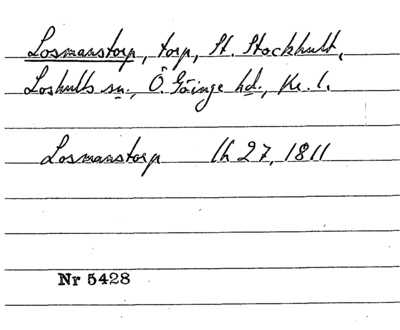 Losmanstorp, torp, St. Stockhult,
Loshults sn., Ö. Göinge hd., Kr. l.
Losmanstorp lh 27, 1811
Nr 5428